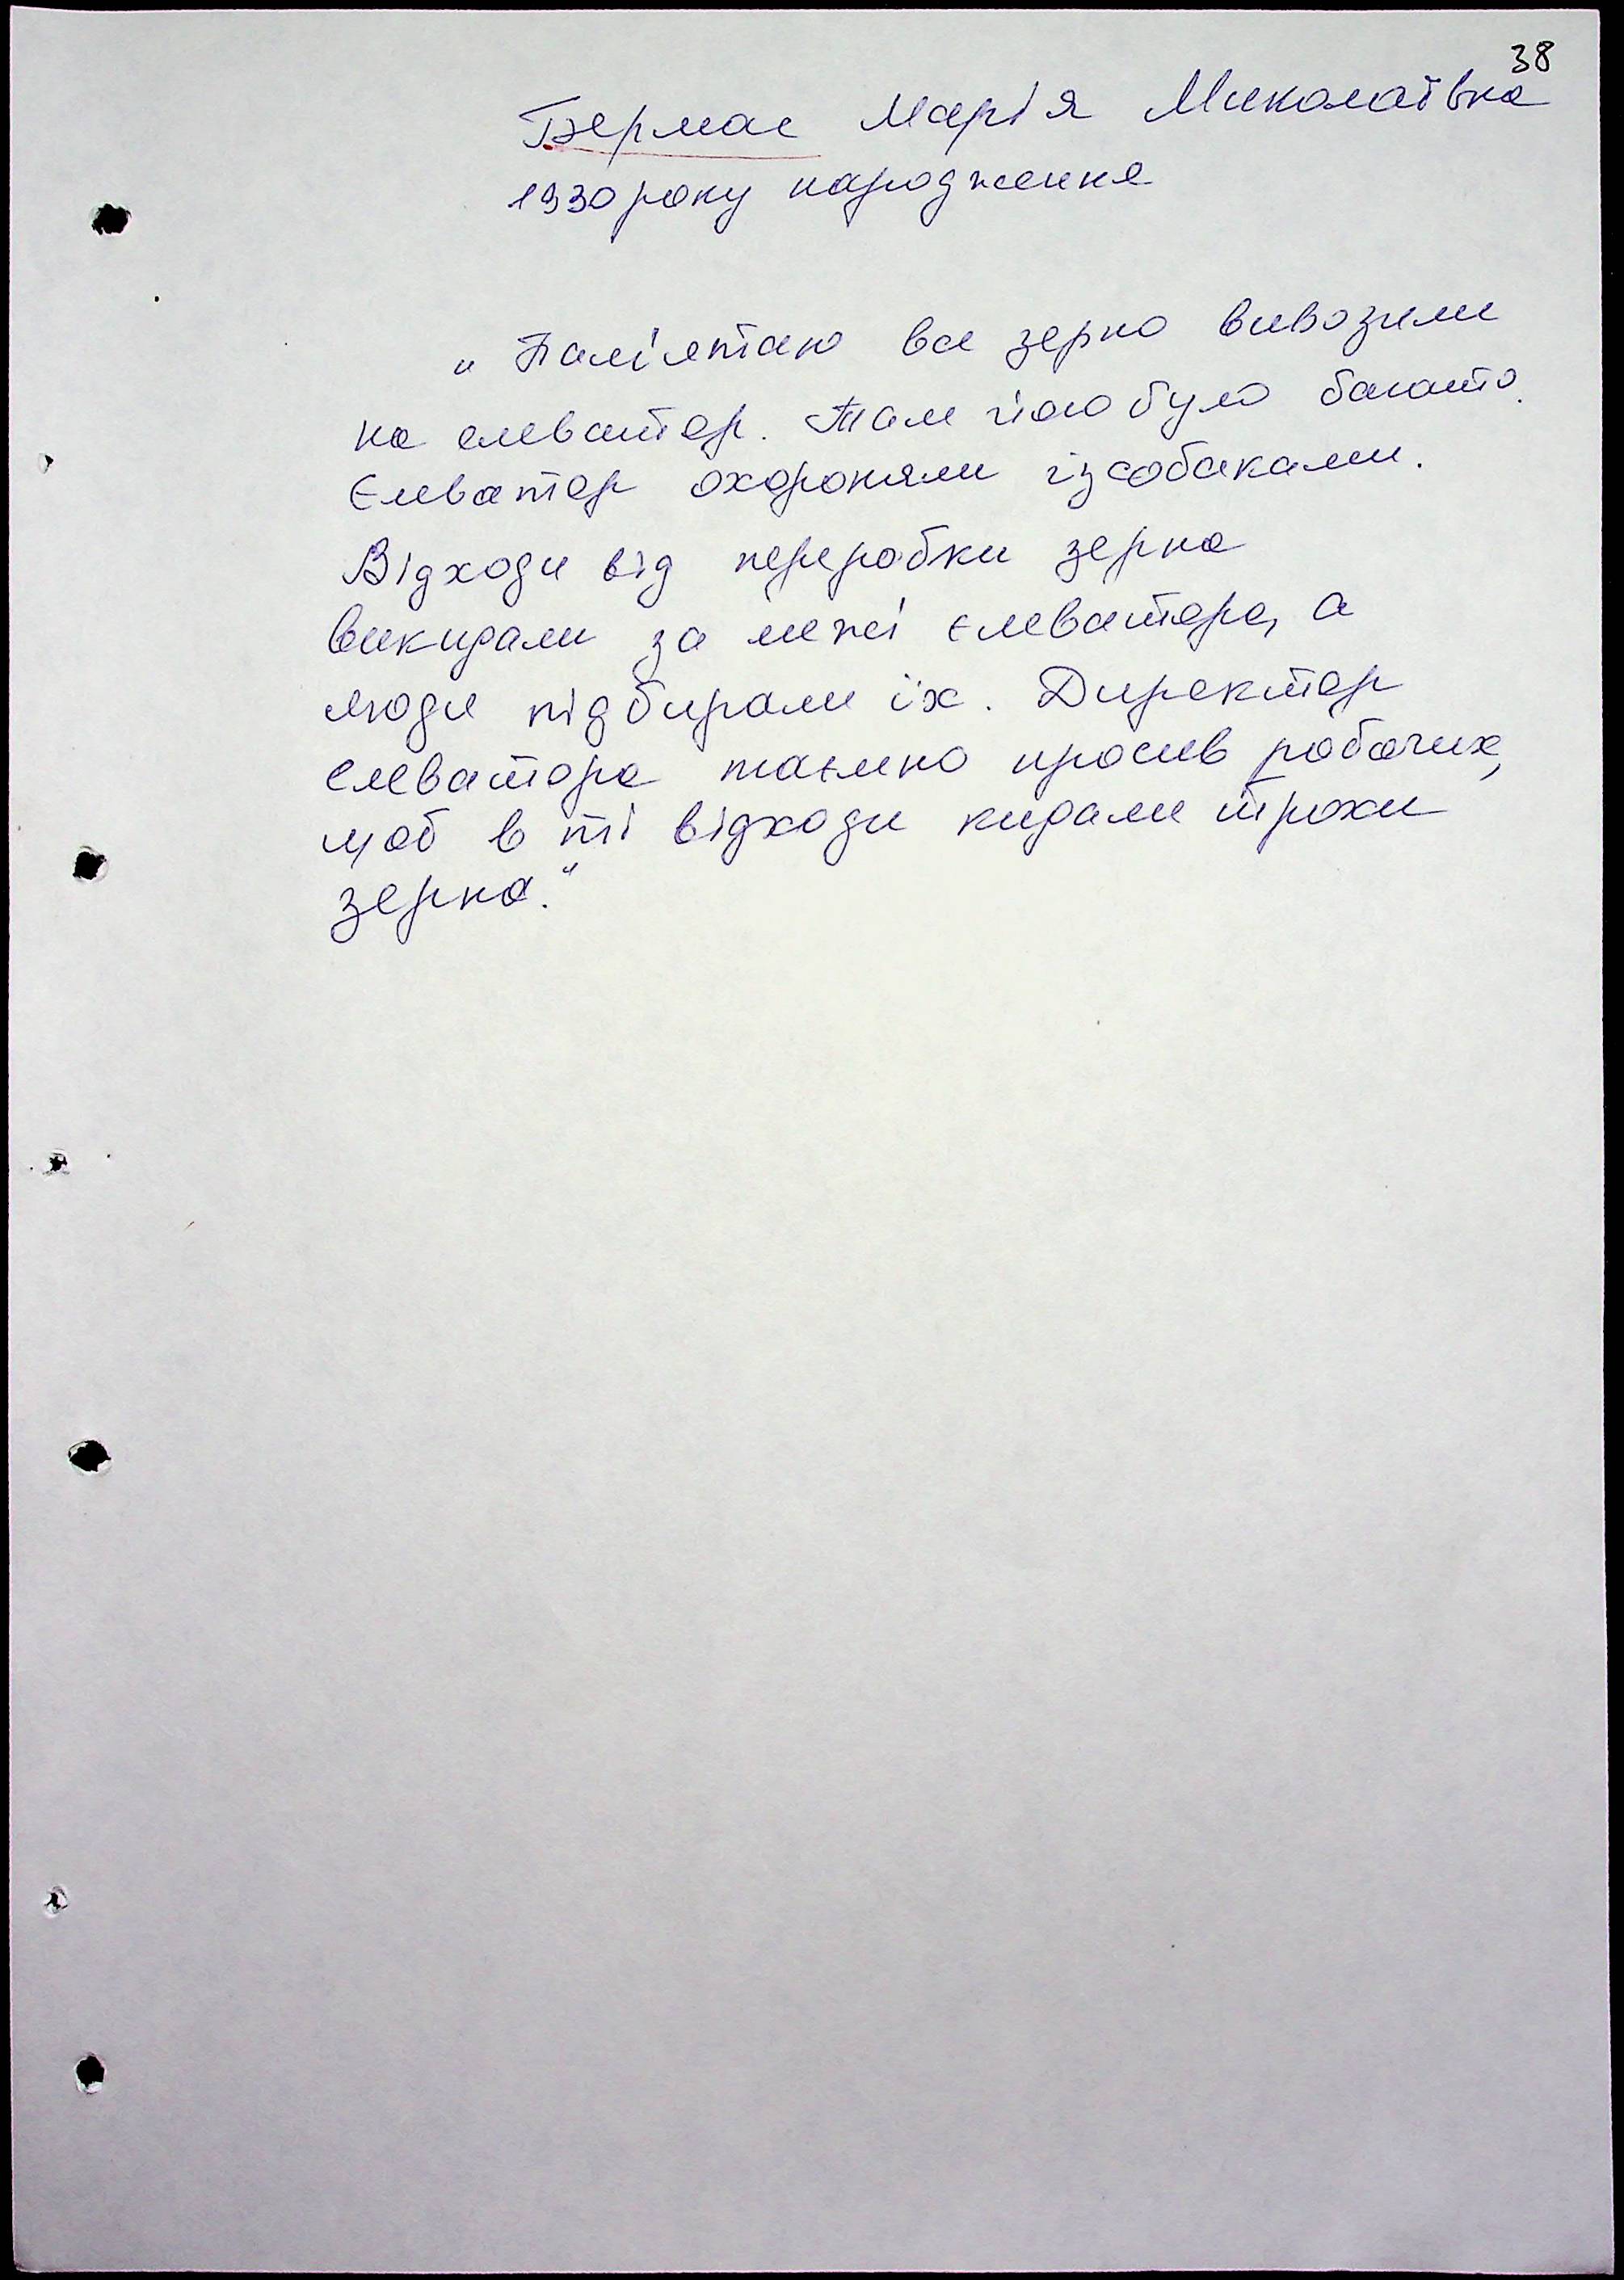 38
Бермас Марія Миколаївна
1930 року народження
„Пам'ятаю все зерно вивозили
на елеватор. Там його було багато.
Єлеватор охороняли із собаками.
Відходи від переробки зерна
викидали за межі єлеватора, а
люди підбирали їх. Директор
елеватора таємно просив робочих,
щоб в ті відходи кидали трохи
зерна."